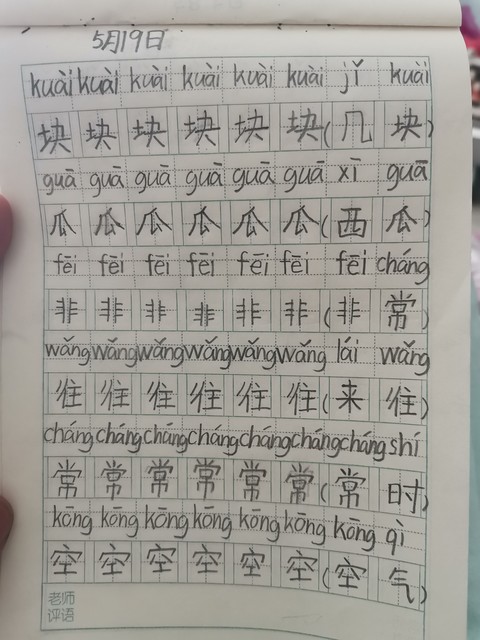 5月19日
kuài kuài kuài kuài kuài kuài jǐ kuài
块 块 块 块 块 块 (几 块)
guā guā guā guā guā guā xī guā
瓜 瓜 瓜 瓜 瓜 瓜 (西 瓜)
fēi fēi fēi fēi fēi fēi fēi cháng
非 非 非 非 非 非 (非 常)
wǎng wǎng wǎng wǎng wǎng wǎng lái wǎng
往 往 往 往 往 往 (来 往)
cháng cháng cháng cháng cháng cháng cháng shí
常 常 常 常 常 常 (常 时)
kōng kōng kōng kōng kōng kōng kōng qì
空 空 空 空 空 空 (空 气)
老师
评语